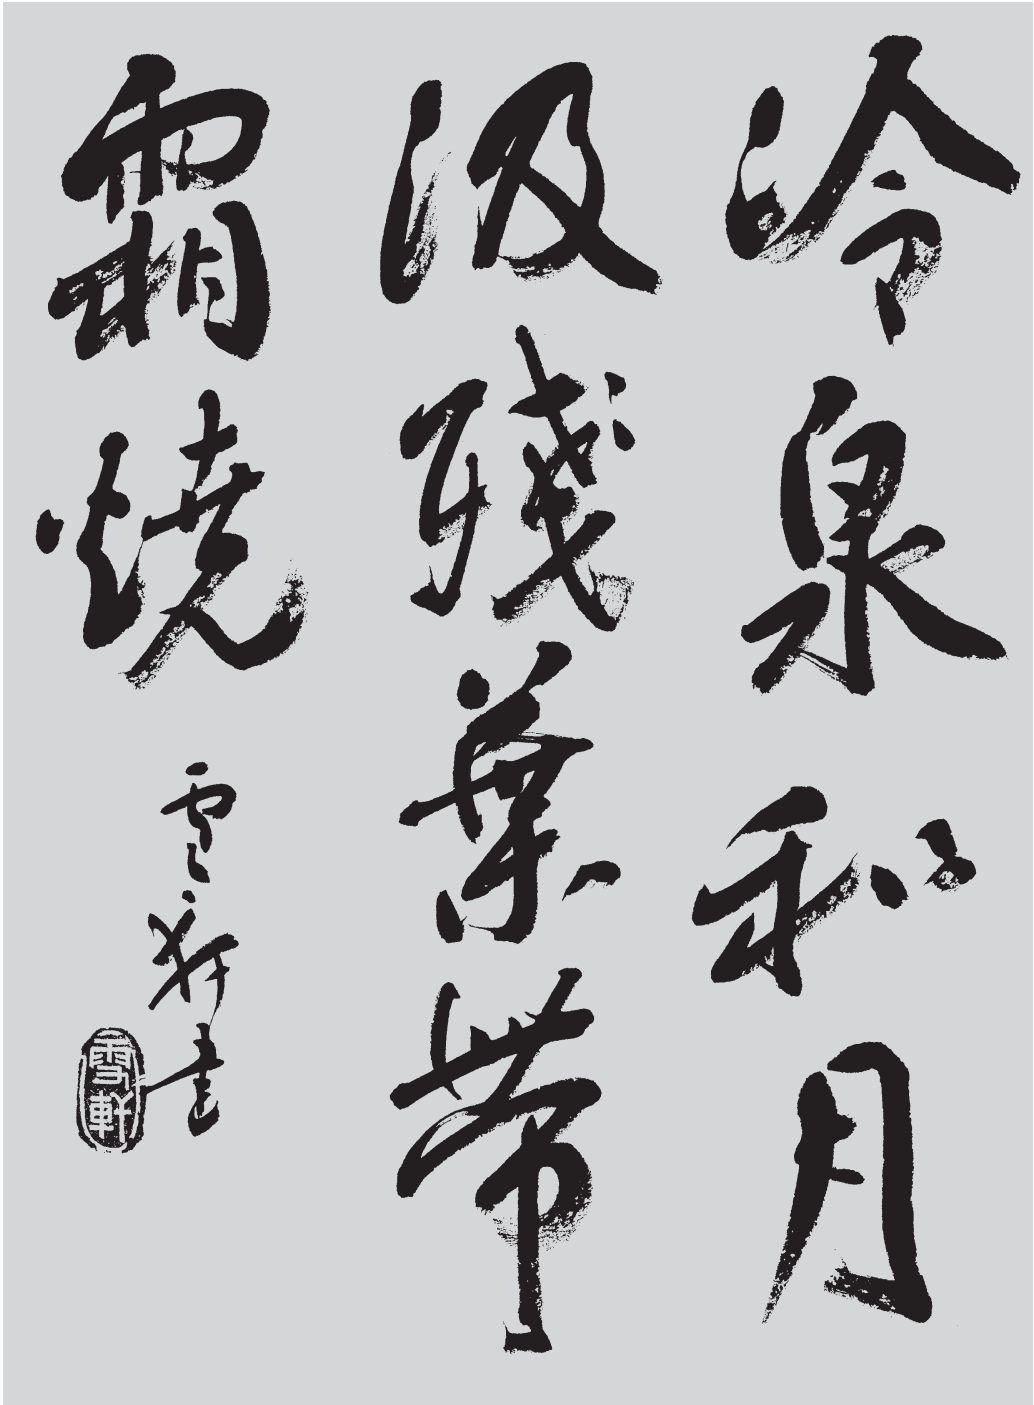 冷泉和月
汲殘葉帶
霜燒
雪軒書
雪軒